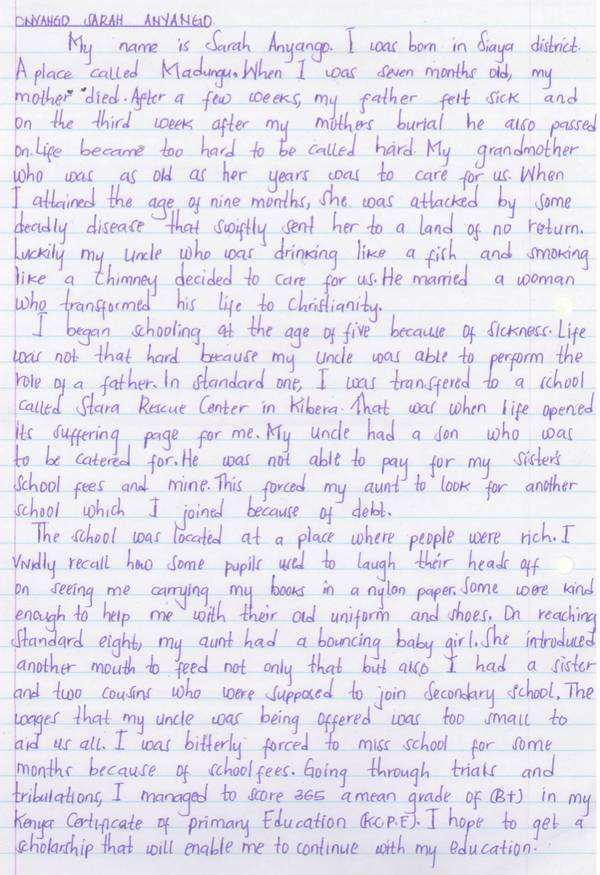 ONYANGO SARAH ANYANGO.
My name is Sarah Anyango. I was born in Siaya district.
A place called Madungu. When I was seven months old, my
mother died. After a few weeks, my father felt sick and
on the third week after my mothers burial he also passed
on. Life became too hard to be called hard. My grandmother
who was as old as her years was to care for us. When
I attained the age of nine months, she was attacked by some
deadly disease that swiftly sent her to a land of no return.
Luckily my uncle who was drinking like a fish and smoking
like a chimney decided to care for us. He married a woman
who transformed his life to Christianity.
I began schooling at the age of five because of sickness. Life
was not that hard because my uncle was able to perform the
role of a father. In standard one, I was transfered to a school
called Stara Rescue Center in Kibera. That was when life opened
its suffering page for me. My uncle had a son who was
to be catered for. He was not able to pay for my sister's
school fees and mine. This forced my aunt to look for another
school which I joined because of debt.
The school was located at a place where people were rich. I
vividly recall how some pupils used to laugh their heads off
on seeing me carrying my books in a nylon paper. Some were kind
enough to help me with their old uniform and shoes. On reaching
Standard eight, my aunt had a bouncing baby girl. She introduced
another mouth to feed not only that but also I had a sister
and two cousins who were supposed to join Secondary school. The
wages that my uncle was being offered was too small to
aid us all. I was bitterly forced to miss school for some
months because of schoolfees. Going through trials and
tribulations, I managed to score 365 a mean grade of (B+) in my
Kenya Certificate of primary Education (K.C.P.E). I hope to get a
scholarship that will enable me to continue with my education.